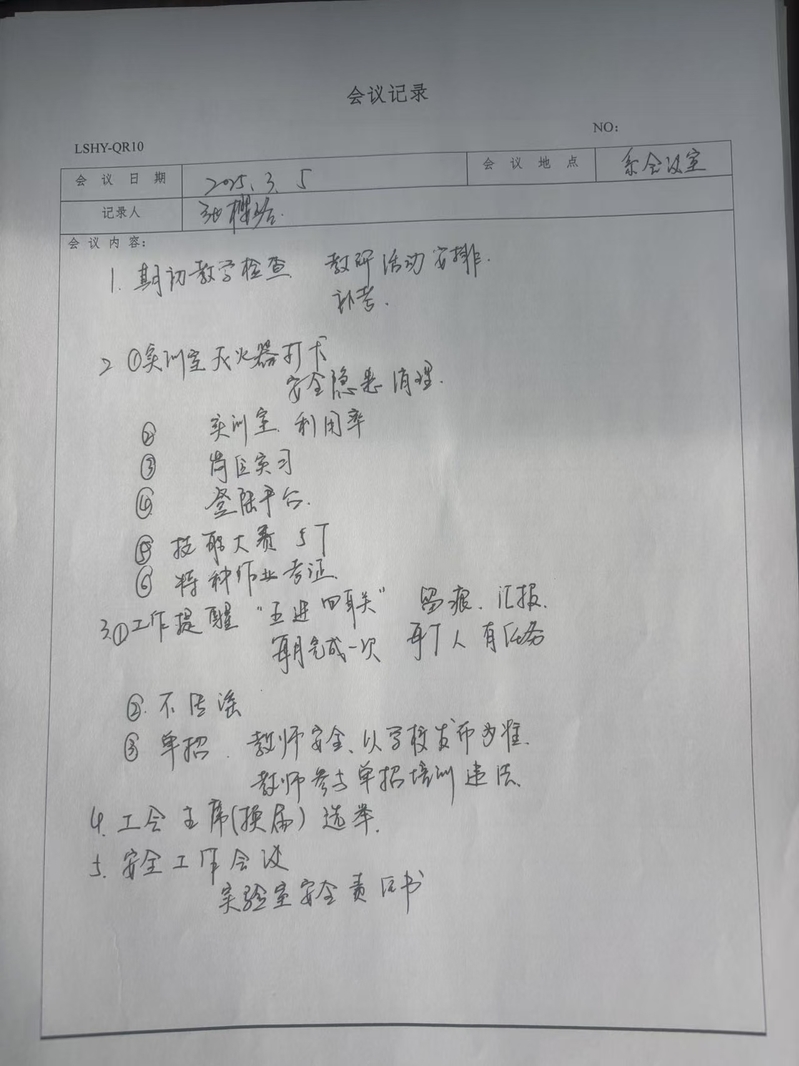 会议记录
NO：
LSHY-QR10
会议日期 2025.3.5 会议地点 系会议室
记录人 张
会议内容：
1. 期初教学检查. 教研活动安排.
补考.
2 ①实训室灭火器打卡
安全隐患清理.
② 实训室.利用率
③ 岗位实习
④ 登陆平台.
⑤ 技能大赛 5个
⑥ 特种作业考证
3.①工作提醒 "五进四联关" 留痕. 汇报.
每月完成一次 每个人有任务
②. 不传谣
③ 单招. 教师安全、以学校发布为准.
教师参与单招培训违法.
4. 工会主席(换届)选举.
5. 安全工作会议
实验室安全责任书